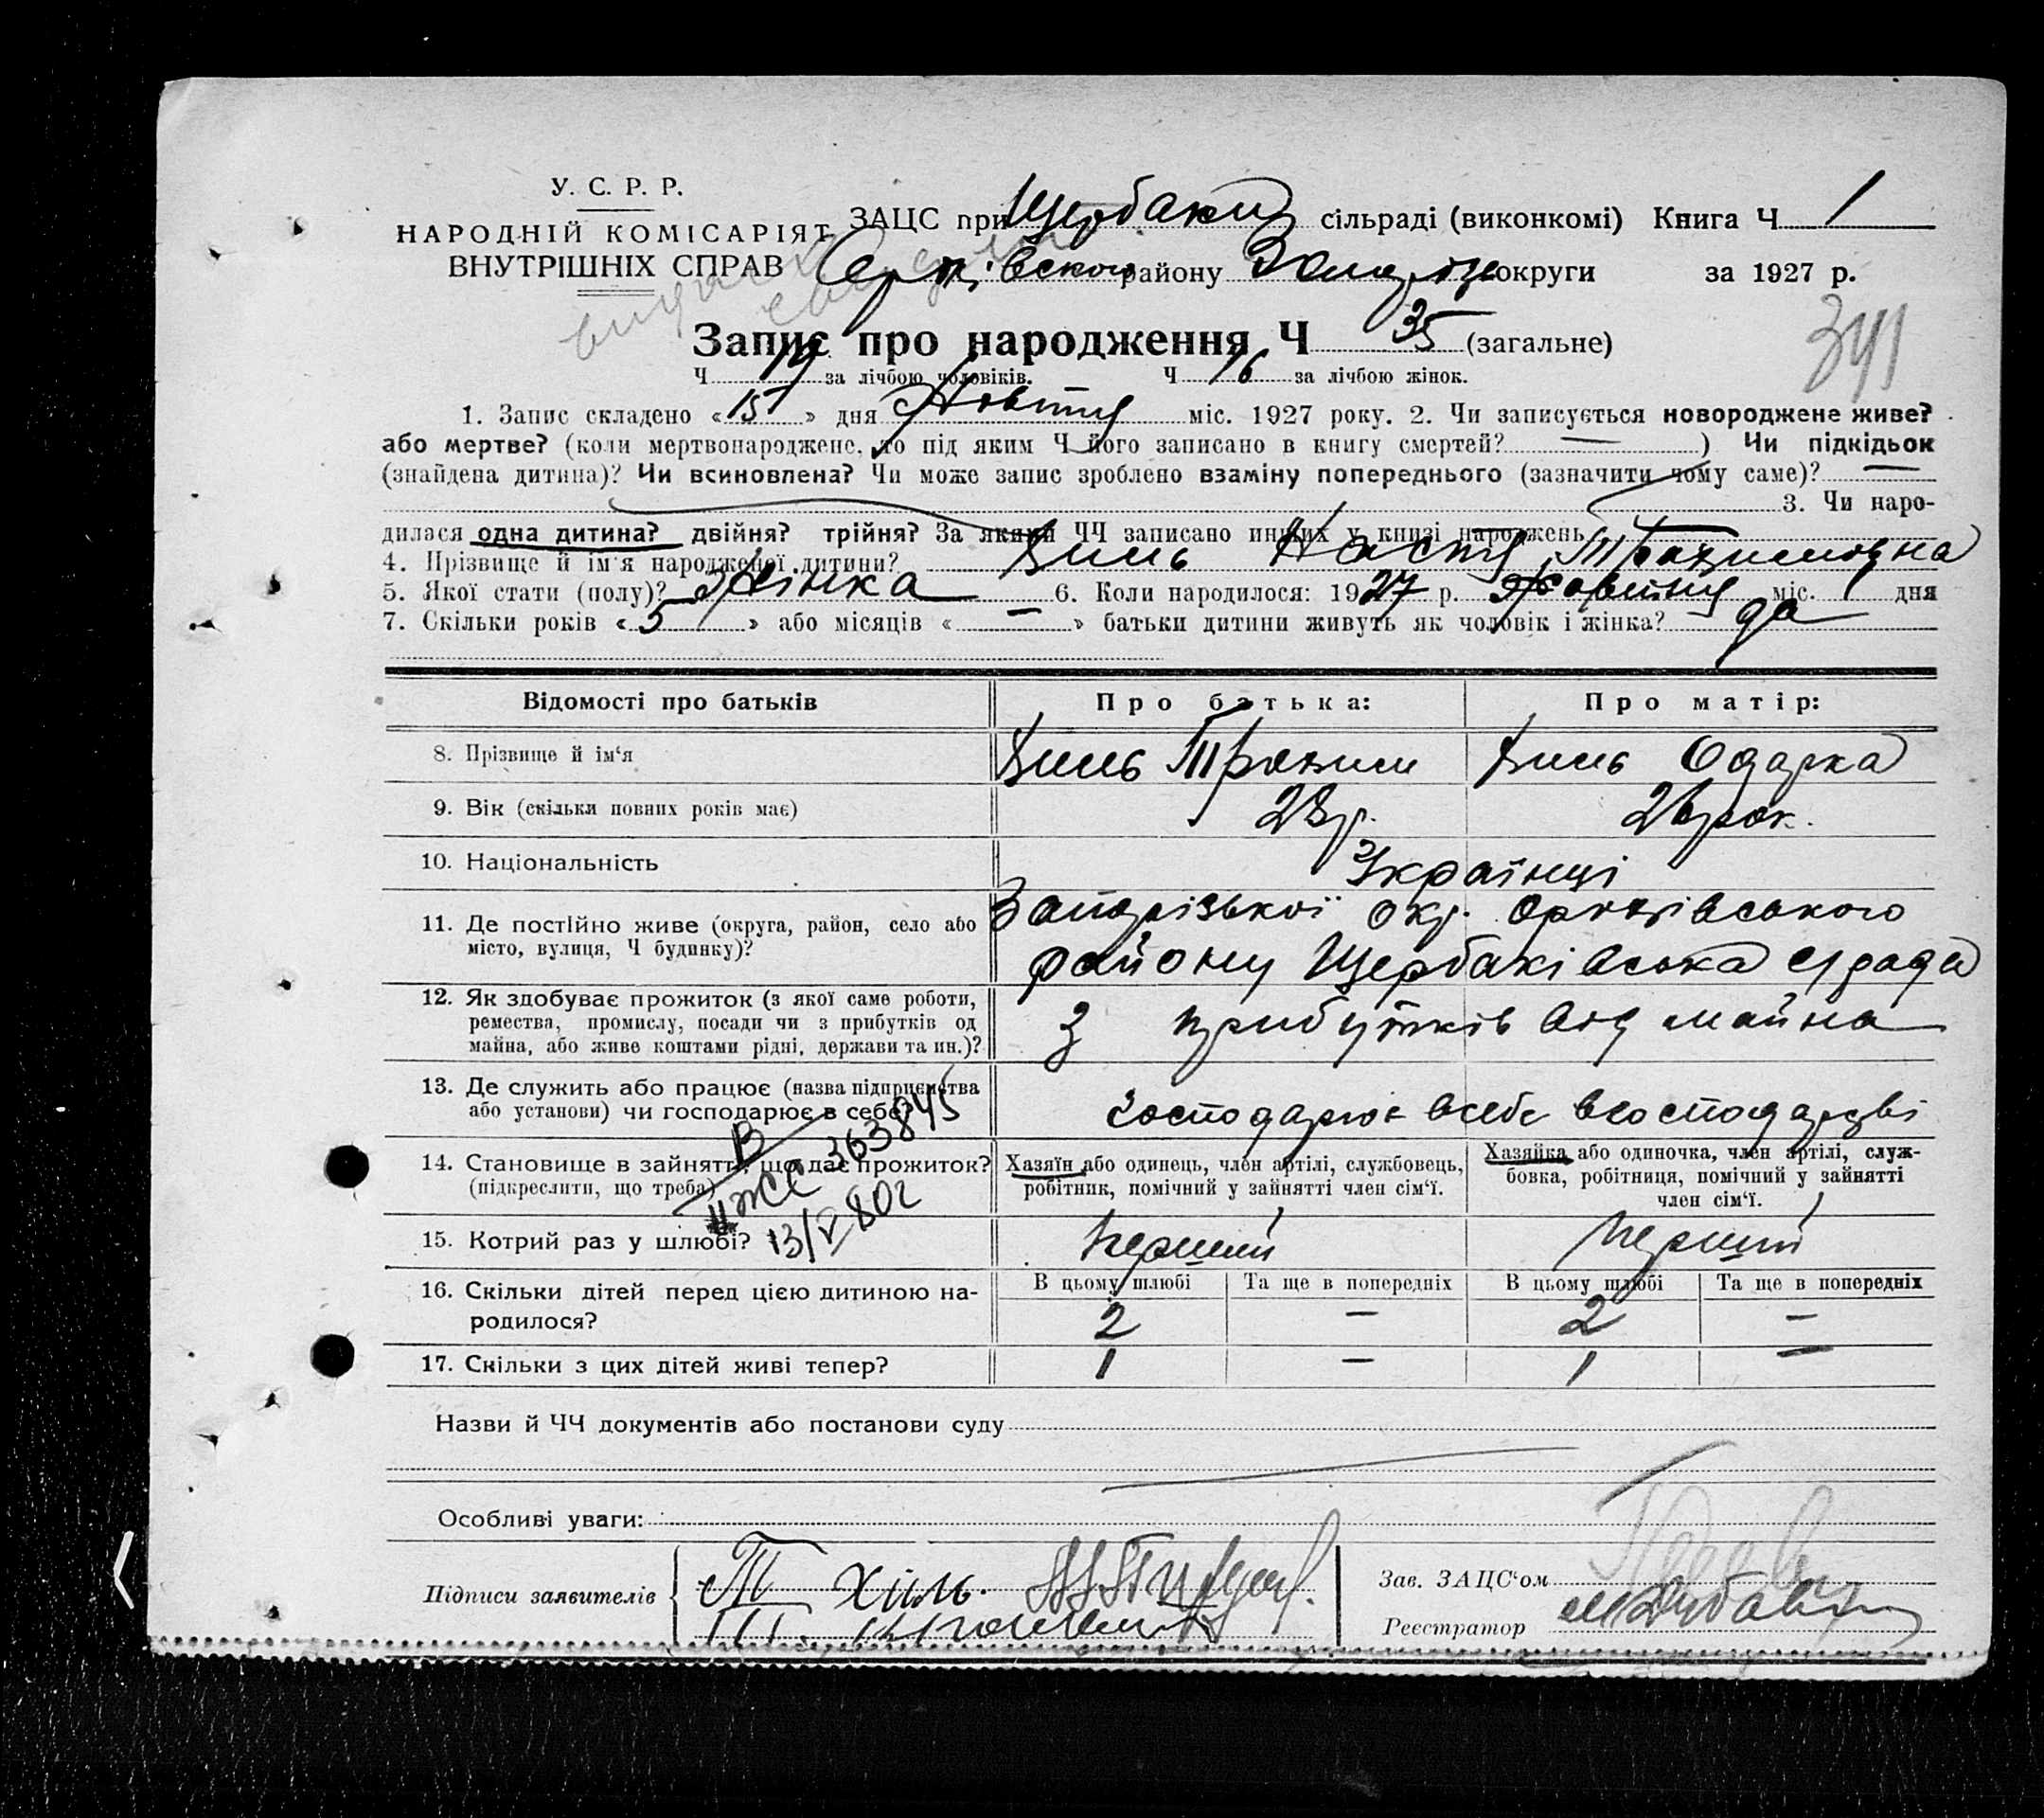 У. С. Р. Р.
НАРОДНІЙ КОМІСАРІЯТ
ВНУТРІШНІХ СПРАВ
ЗАЦС при Щербаки сільраді (виконкомі) Книга Ч 1
району округи за 1927 р.
Запис про народження Ч 35 (загальне)
341
Ч 19 за лічбою чоловіків. Ч 16 за лічбою жінок.
1. Запис складено «15» дня Жовтня міс. 1927 року. 2. Чи записується новороджене живе?
або мертве? (коли мертвонароджене, то під яким Ч його записано в книгу смертей? — ) Чи підкідьок
(знайдена дитина)? Чи всиновлена? Чи може запис зроблено взаміну попереднього (зазначити чому саме)? —
3. Чи наро-
дилася одна дитина? двійня? трійня? За якими ЧЧ записано инших у книзі народжень
4. Прізвище й ім'я народженої дитини? Хиль Настя Трохимовна
5. Якої стати (полу)? Жінка 6. Коли народилося: 1927 р. Жовтня міс. 1 дня
7. Скільки років «5» або місяців « — » батьки дитини живуть як чоловік і жінка? да
Відомості про батьків Про батька: Про матір:
8. Прізвище й ім'я Хиль Трохим Хиль Одарка
9. Вік (скільки повних років має) 28 р. 26 рок.
10. Національність Українці
11. Де постійно живе (округа, район, село або Запорізької окр. Оріхівського
місто, вулиця, Ч будинку)? району Щербаківська с/рада
12. Як здобуває прожиток (з якої саме роботи,
ремества, промислу, посади чи з прибутків од З прибутків від майна
майна, або живе коштами рідні, держави та ин.)?
13. Де служить або працює (назва підприємства
або установи) чи господарює в себе? господарює в себе в господарстві
14. Становище в зайнятті, що дає прожиток?
(підкреслити, що треба)
Хазяїн або одинець, член артілі, службовець,
робітник, помічний у зайнятті член сім'ї.
Хазяйка або одиночка, член артілі, служ-
бовка, робітниця, помічний у зайнятті
член сім'ї.
ІІ ЖС 363845
13/V 80г
15. Котрий раз у шлюбі? перший перший
16. Скільки дітей перед цією дитиною на-
родилося?
В цьому шлюбі Та ще в попередніх В цьому шлюбі Та ще в попередніх
2 — 2 —
17. Скільки з цих дітей живі тепер? 1 — 1 —
Назви й ЧЧ документів або постанови суду
Особливі уваги:
Підписи заявителів Т Хіль.
Зав. ЗАЦС'ом
Реєстратор